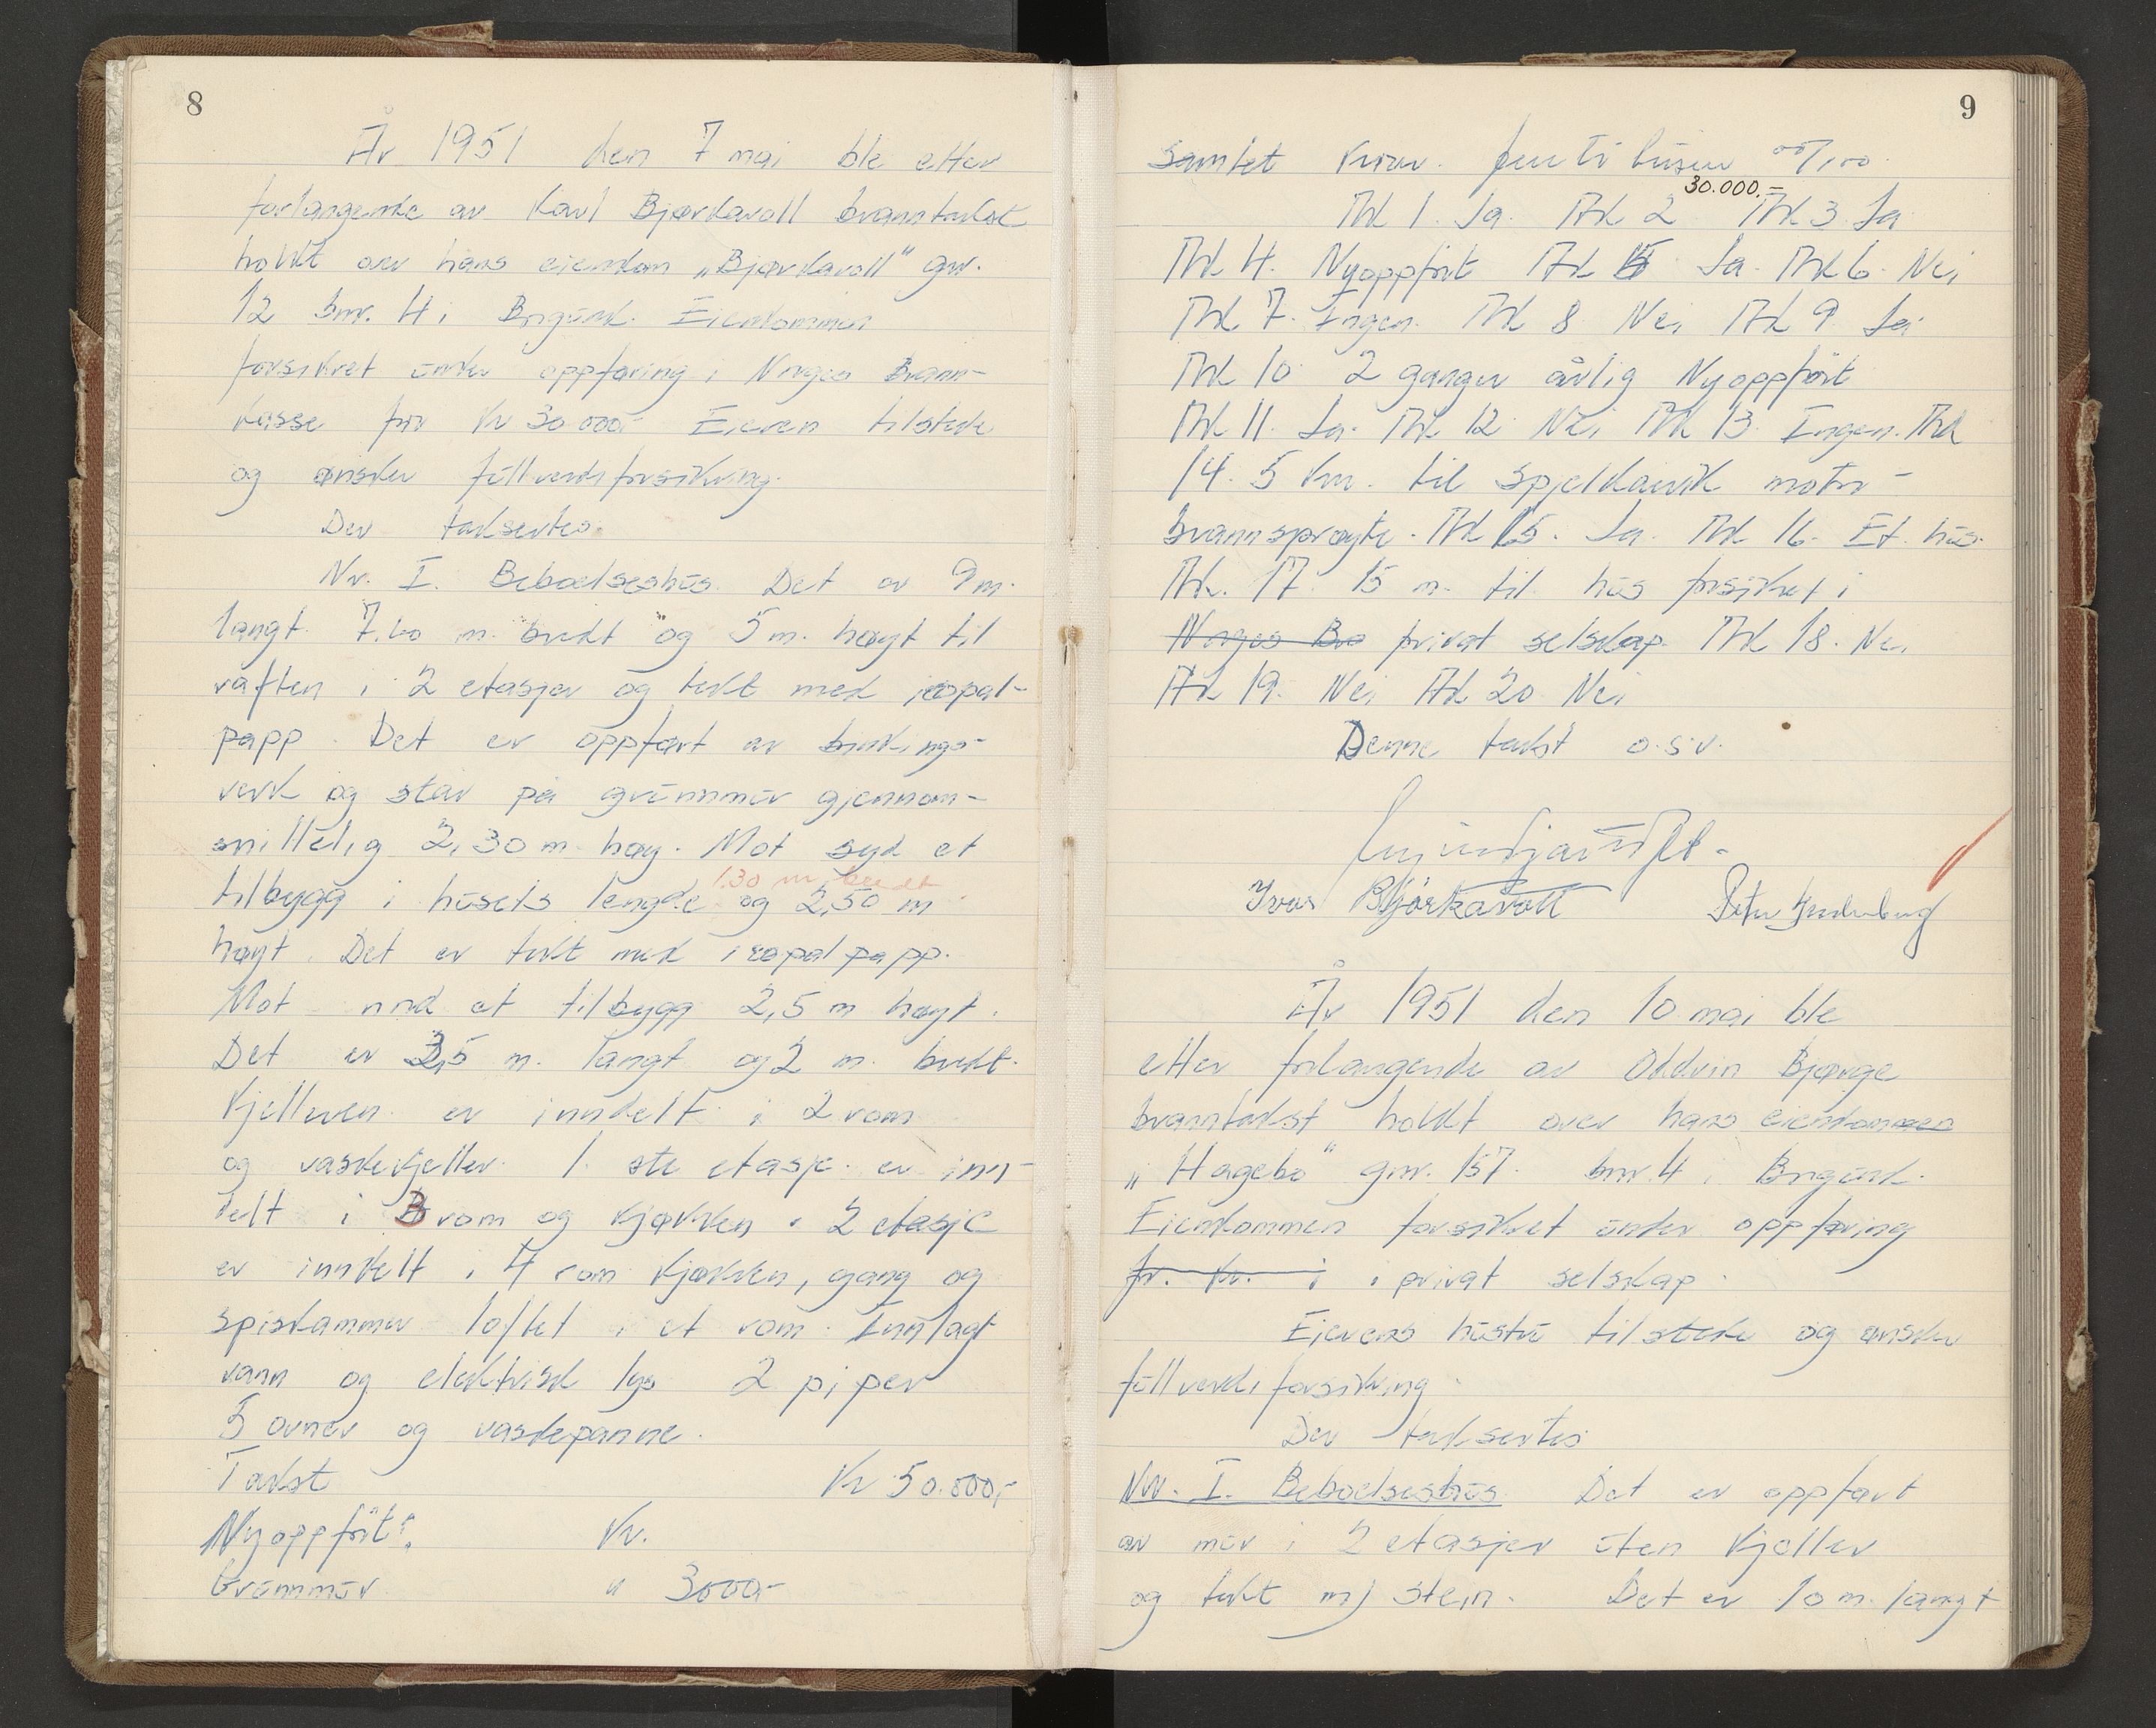 8
År 1951 den 7 mai ble etter
forlangende av Karl Bjørkavoll branntakst
holdt over hans eiendom „Bjørkavoll" gnr.
12 bnr. 4 i Borgund. Eiendommen
forsikret under oppføring i Norges Brann-
kasse for Kr 30.000,- Eieren tilstede
og ønsker fullverdiforsikring.
Der taksertes.
Nr. I. Beboelseshus. Det er 9 m.
langt 7.60 m. bredt og 5 m. høyt til
raften i 2 etasjer og tekt med icopal-
papp. Det er oppført av bindings-
verk og står på grunnmur gjennom-
snittelig 2,30 m høy. Mot syd et
1.30 m bredt
tilbygg i husets lengde og 2,50 m
høyt. Det er tekt med icopalpapp.
Mot nord et tilbygg 2,5 m høyt.
Det er 3,5 m. langt og 2 m. bredt.
Kjelleren er inndelt i 2 rom
og vaskekjeller. 1. ste etasje er inn-
delt i 3 rom og kjøkken. 2 etasje
er inndelt i 4 rom kjøkken, gang og
spiskammer loftet i et rom. Innlagt
vann og elektrisk lys 2 piper
5 ovner og vaskepanne.
Takst Kr 50.000,-
Nyoppført: Kr.
Grunnmur " 3000,-
9
Samlet Kroner femti tusen 00/100
30.000.-
Pkt 1. Ja. Pkt 2 Pkt 3 Ja
Pkt 4. Nyoppført Pkt 5 Ja. Pkt 6. Nei
Pkt 7. Ingen. Pkt 8 Nei Pkt 9 Ja
Pkt 10 2 ganger årlig Nyoppført
Pkt 11. Ja. Pkt 12 Nei Pkt 13. Ingen. Pkt
14. 5 Km. til Spjelkavik motor-
brannsprøyte. Pkt 15. Ja. Pkt 16. Et hus.
Pkt. 17 15 m. til hus forsikret i
Norges Br privat selskap. Pkt 18. Nei
Pkt 19. Nei Pkt 20 Nei
Denne takst o.s.v.
Ivar Bjørkavoll Peter
År 1951 den 10 mai ble
etter forlangende av Oddvin Bjørge
branntakst holdt over hans eiendommen
„Hagebo" gnr. 157. bnr. 4 i Borgund.
Eiendommen forsikret under oppføring
for. Kr. i i privat selskap.
Eierens hustru tilstede og ønsker
fullverdiforsikring.
Der taksertes
Nr. I. Beboelseshus. Det er oppført
av mur i 2 etasjer uten kjeller
og tekt m/ stein. Det er 10 m. langt